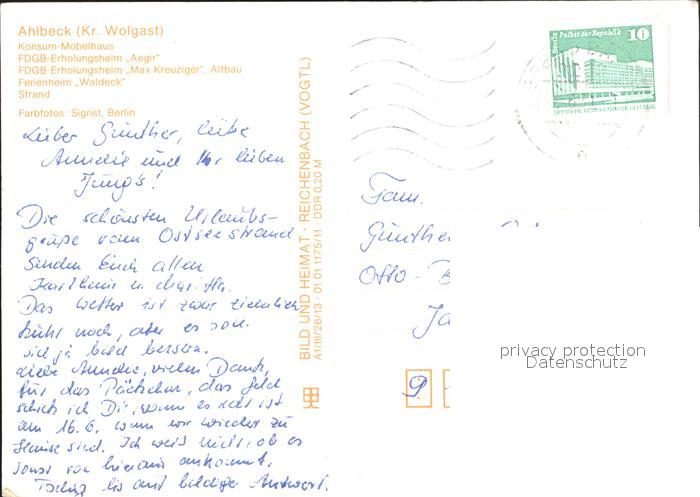 Ahlbeck (Kr. Wolgast)
Konsum-Möbelhaus
FDGB-Erholungsheim „Aegir“
FDGB-Erholungsheim „Max Kreuziger“, Altbau
Ferienheim „Waldeck“
Strand
Farbfotos: Sigrist, Berlin
Lieber Günther, liebe
Annelie und Ihr lieben
Jung's!
Die schönsten Urlaubs-
grüße vom Ostseestrand
senden Euch allen
Karlheinz u.
Das Wetter ist zwar ziemlich
kühl noch, aber es soll
sich ja bald bessern.
Liebe Annelie, vielen Dank,
für das Päckchen, das Geld
schick ich Dir, wenn es recht ist
am 16.6. wenn wir wieder zu
Hause sind. Ich weiß nicht, ob es
sonst von hieraus ankommt.
Tschüß bis auf baldige Antwort.
BILD UND HEIMAT · REICHENBACH (VOGTL)
A1/III/26/13 · 01 01 1175/11 · DDR 0,20 M
Berlin Palast der Republik
10
DEUTSCHE DEMOKRATISCHE REPUBLIK
Fam.
Günther
Otto-
Ja
9
privacy protection
Datenschutz